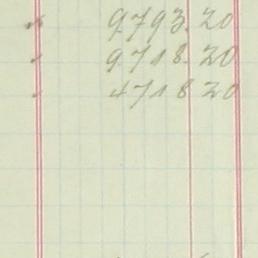 " 9793.20
" 9718.20
" 4718 20